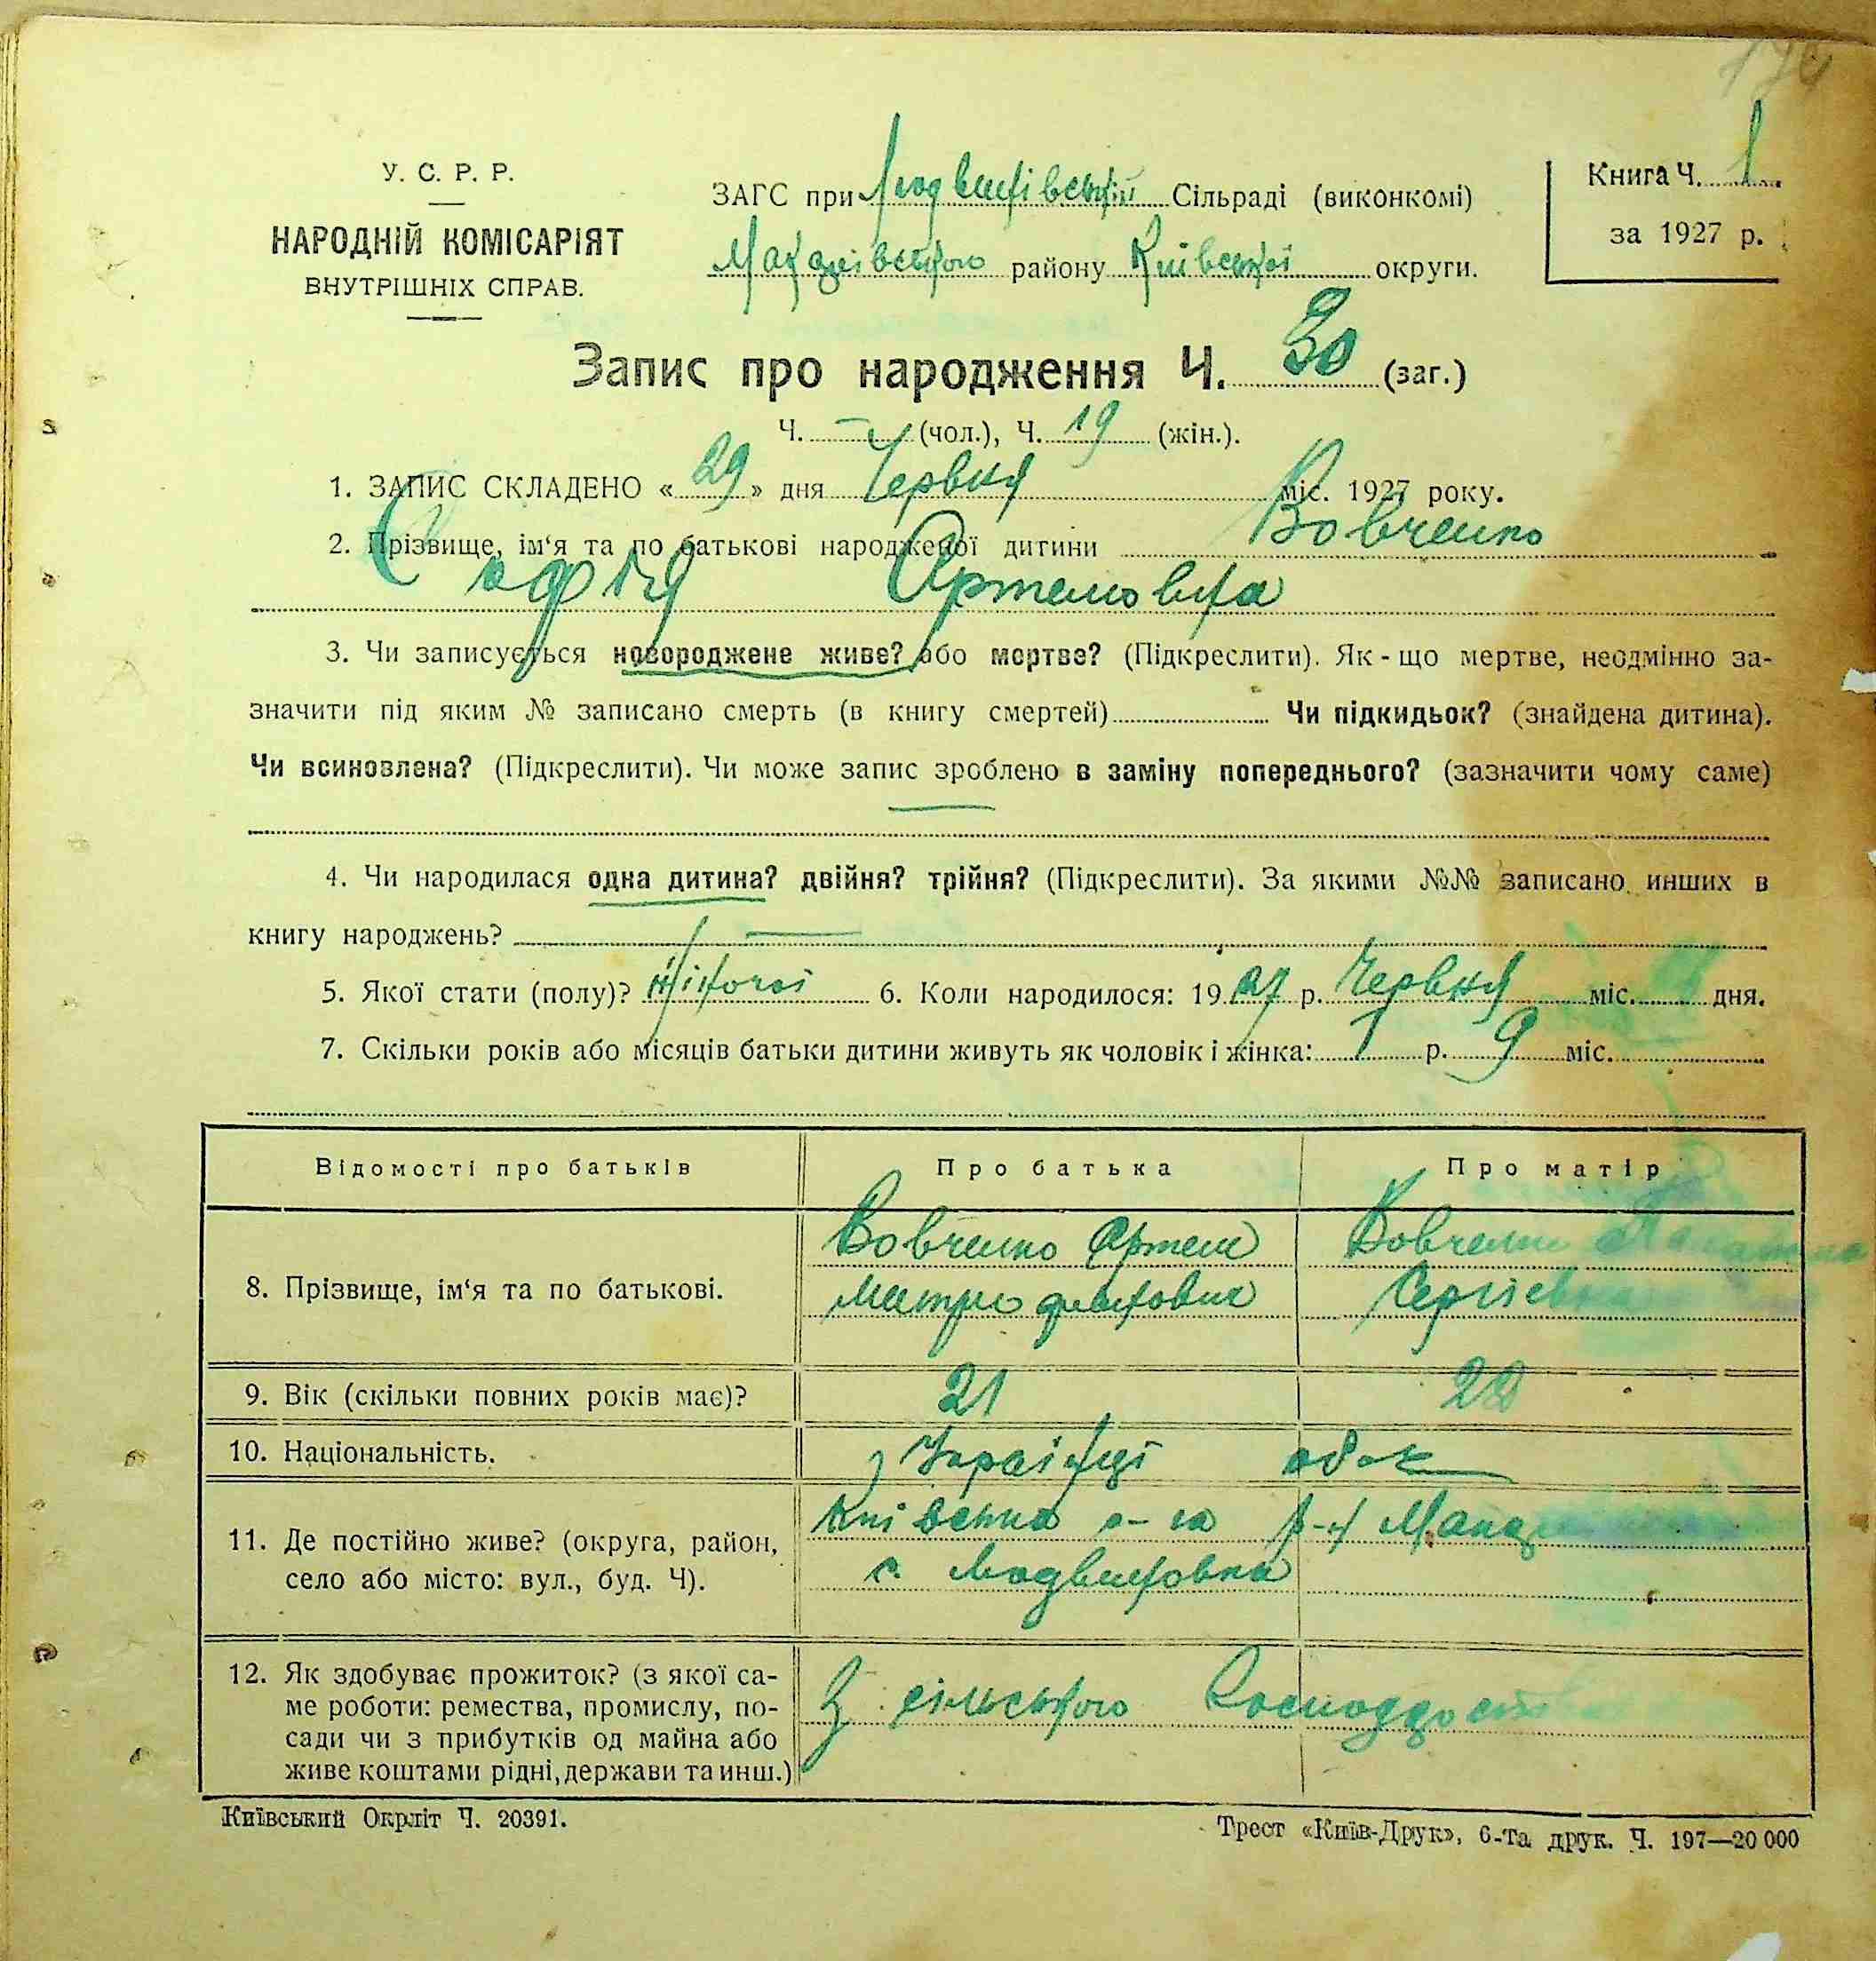 У. С. Р. Р.
НАРОДНІЙ КОМІСАРІЯТ
ВНУТРІШНІХ СПРАВ.
ЗАГС при Людвинівській Сільраді (виконкомі)
Макарівського району Київської округи.
Книга Ч. 1
за 1927 р.
Запис про народження Ч. 30 (заг.)
Ч. — (чол.), Ч. 19 (жін.).
1. ЗАПИС СКЛАДЕНО « 29 » дня Червня міс. 1927 року.
2. Прізвище, ім‘я та по батькові народженої дитини Вовченко
Софія Артемовна
3. Чи записується новороджене живе? або мертве? (Підкреслити). Як-що мертве, неодмінно за-
значити під яким № записано смерть (в книгу смертей) Чи підкидьок? (знайдена дитина).
Чи всиновлена? (Підкреслити). Чи може запис зроблено в заміну попереднього? (зазначити чому саме)
—
4. Чи народилася одна дитина? двійня? трійня? (Підкреслити). За якими №№ записано инших в
книгу народжень? —
5. Якої стати (полу)? Жіночої 6. Коли народилося: 1927 р. Червня міс. дня.
7. Скільки років або місяців батьки дитини живуть як чоловік і жінка: 1 р. 9 міс.
Відомості про батьків Про батька Про матір
8. Прізвище, ім‘я та по батькові.
Вовченко Артем
Митрофанович
Вовченко
Сергіевна
9. Вік (скільки повних років має)? 21
10. Національність. Українці
11. Де постійно живе? (округа, район,
село або місто: вул., буд. Ч).
Київська о-га р-н
с. Людвиновка
12. Як здобуває прожиток? (з якої са-
ме роботи: ремества, промислу, по-
сади чи з прибутків од майна або
живе коштами рідні, держави та инш.)
З сільського
Київський Окрліт Ч. 20391.
Трест «Київ-Друк», 6-та друк. Ч. 197—20 000